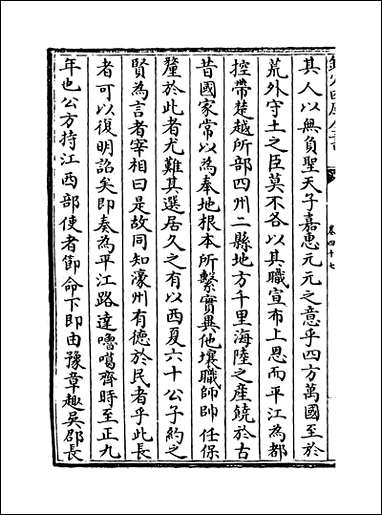 欽定四庫全書
卷四十七
其人以無負聖天子嘉惠元元之意乎四方萬國至於
荒外守土之臣莫不各以其職宣布上恩而平江為都
控帶楚越所部四州二縣地方千里海陸之產饒於古
昔國家常以為奉地根本所繫實異他壤職師帥任保
釐於此者尤難其選居久之有以西夏六十公子約之
賢為言者宰相曰是故同知濠州有德於民者乎此長
者可以復明詔矣即奏為平江路達嚕噶齊時至正九
年也公方持江西部使者節命下即由豫章趣吳郡長